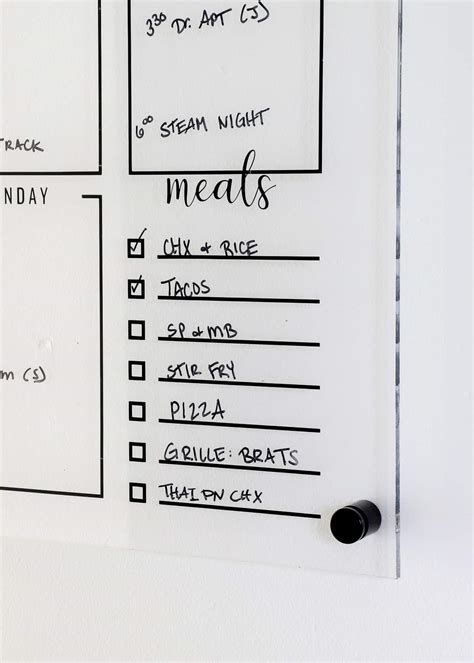 3:30 DR. APT (J)
6:00 STEAM NIGHT
TRACK
NDAY
m (S)
meals
CHX & RICE
TACOS
SP & MB
STIR FRY
PIZZA
GRILLE: BRATS
THAI PN CHX